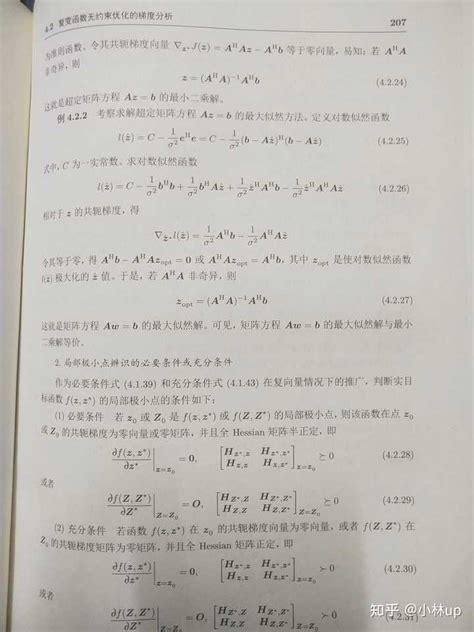 4.2 复变函数无约束优化的梯度分析 207
为准则函数、令其共轭梯度向量 ∇_{z*}J(z) = A^H Az − A^H b 等于零向量, 易知: 若 A^H A
非奇异, 则
z = (A^H A)^{-1} A^H b (4.2.24)
这就是超定矩阵方程 Az = b 的最小二乘解。
例 4.2.2 考察求解超定矩阵方程 Az = b 的最大似然方法。定义对数似然函数
l(ẑ) = C − 1/σ² e^H e = C − 1/σ² (b − Aẑ)^H (b − Aẑ) (4.2.25)
式中, C 为一实常数。求对数似然函数
l(ẑ) = C − 1/σ² b^H b + 1/σ² b^H Aẑ + 1/σ² ẑ^H A^H b − 1/σ² ẑ^H A^H Aẑ (4.2.26)
相对于 z 的共轭梯度, 得
∇_{ẑ*} l(ẑ) = 1/σ² A^H b − 1/σ² A^H Aẑ
令其等于零, 得 A^H b − A^H Az_opt = 0 或 A^H Az_opt = A^H b, 其中 z_opt 是使对数似然函数
l(ẑ) 极大化的 ẑ 值。于是, 若 A^H A 非奇异, 则
z_opt = (A^H A)^{-1} A^H b (4.2.27)
这就是矩阵方程 Aw = b 的最大似然解。可见, 矩阵方程 Aw = b 的最大似然解与最小
二乘解等价。
2. 局部极小点辨识的必要条件或充分条件
作为必要条件式 (4.1.39) 和充分条件式 (4.1.43) 在复向量情况下的推广, 判断实目
标函数 f(z, z*) 的局部极小点的条件如下:
(1) 必要条件 若 z₀ 或 Z₀ 是 f(z, z*) 或 f(Z, Z*) 的局部极小点, 则该函数在点 z₀
或 Z₀ 的共轭梯度为零向量或零矩阵, 并且全 Hessian 矩阵半正定, 即
∂f(z, z*)/∂z* |_{z=z₀} = 0, [H_{z*,z} H_{z*,z*}; H_{z,z} H_{z,z*}]_{z=z₀} ⪰ 0 (4.2.28)
或者
∂f(Z, Z*)/∂Z* |_{Z=Z₀} = O, [H_{Z*,Z} H_{Z*,Z*}; H_{Z,Z} H_{Z,Z*}]_{Z=Z₀} ⪰ 0 (4.2.29)
(2) 充分条件 若函数 f(z, z*) 在 z₀ 的共轭梯度向量为零向量, 或者 f(Z, Z*) 在
Z₀ 的共轭梯度矩阵为零矩阵, 并且全 Hessian 矩阵正定, 即
∂f(z, z*)/∂z* |_{z=z₀} = 0, [H_{z*,z} H_{z*,z*}; H_{z,z} H_{z,z*}]_{z=z₀} ≻ 0 (4.2.30)
或者
∂f(Z, Z*)/∂Z* = O, [H_{Z*,Z} H_{Z*,Z*} ≻ 0 (4.2.31)
知乎 @小林up